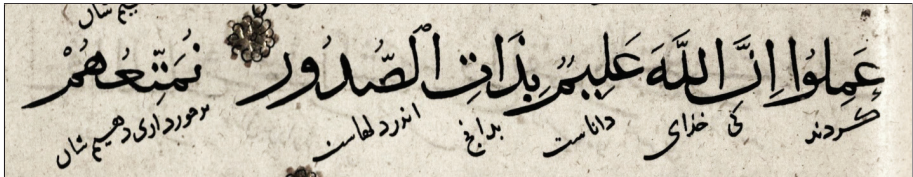 عَمِلُوا اِنَّ اللَّهَ عَلِيمٌ بِذَاتِ الصُّدُورِ نُمَتِّعُهُمْ
کردند کی خدای داناست بدانچ اندر دلهاست برخورداری دهیم شان